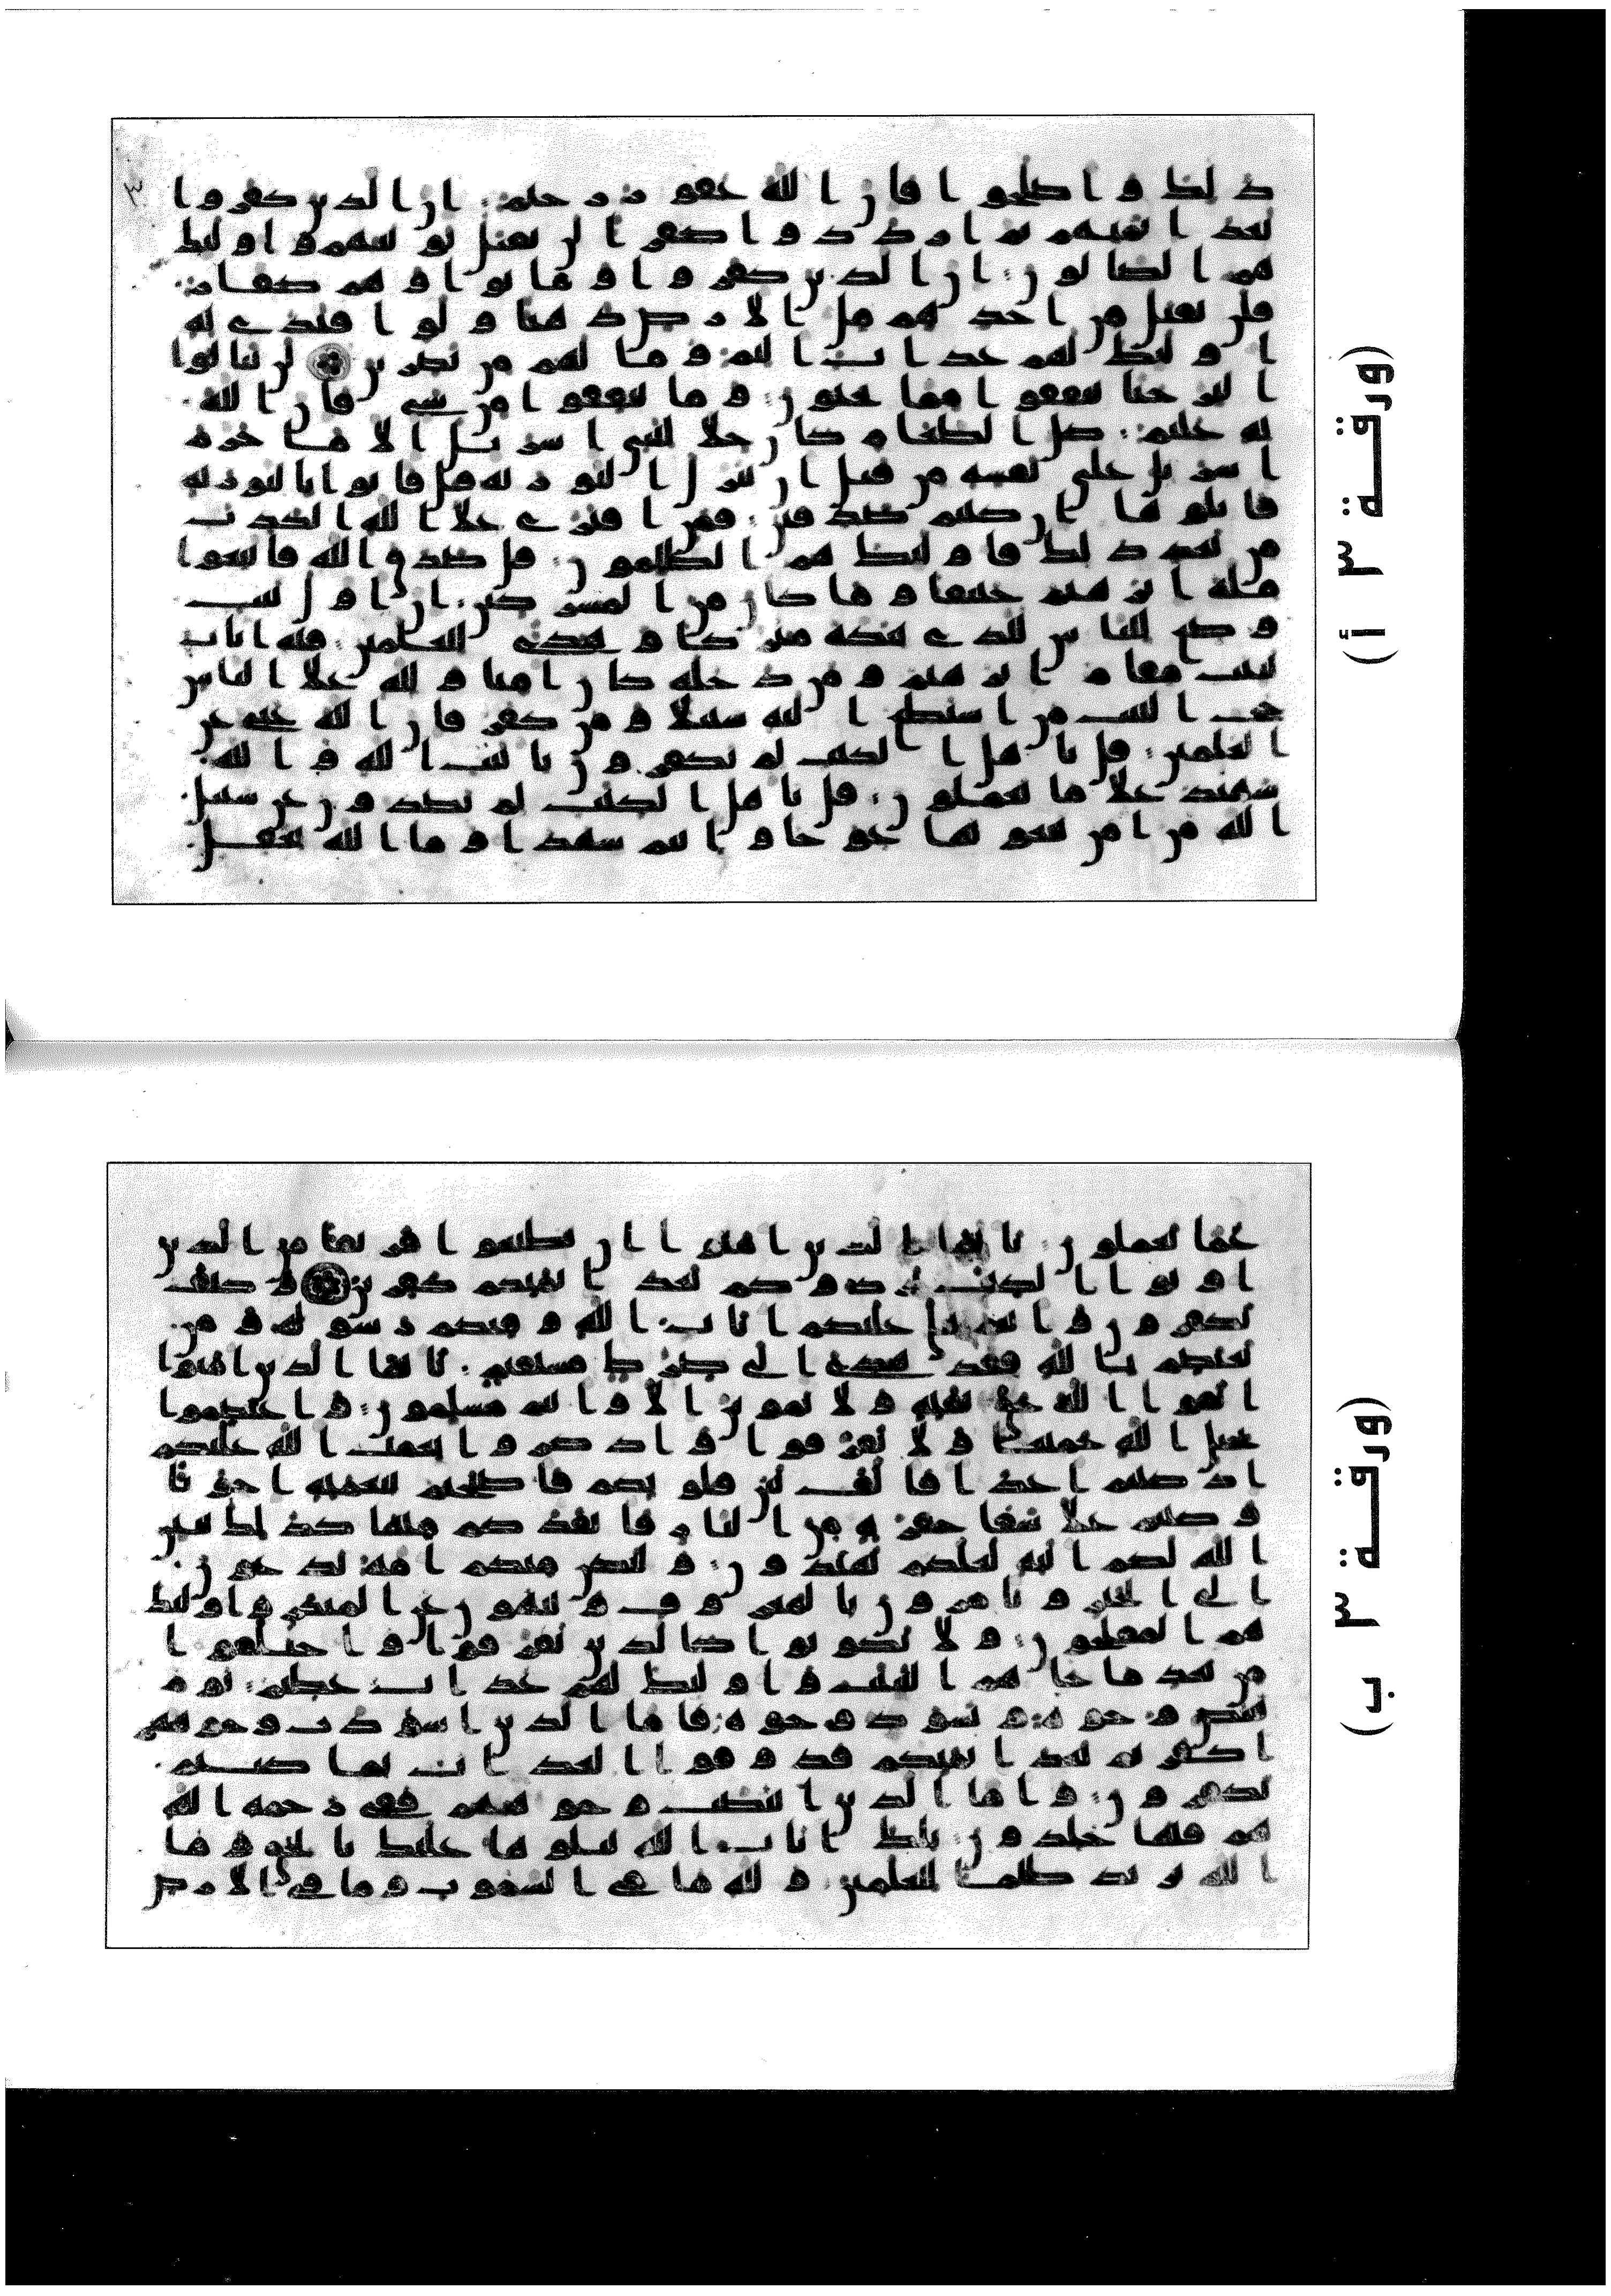 (ورقة ٣ أ)
ذلك واصلحوا فان الله غفور رحيم ان الذين كفروا
بعد ايمنهم ثم ازدادوا كفرا لن تقبل توبتهم واولئك
هم الضالون ان الذين كفروا وماتوا وهم كفار
فلن يقبل من احدهم مل الارض ذهبا ولو افتدى به
اولئك لهم عذاب اليم وما لهم من نصرين لن تنالوا
البر حتا تنفقوا مما تحبون وما تنفقوا من شي فان الله
به عليم كل الطعام كان حلا لبني اسريل الا ما حرم
اسريل على نفسه من قبل ان تنزل التورية قل فاتوا بالتورية
فاتلوها ان كنتم صدقين فمن افترى علا الله الكذب
من بعد ذلك فاولئك هم الظلمون قل صدق الله فاتبعوا
ملة ابرهيم حنيفا وما كان من المشركين ان اول بيت
وضع للناس للذي ببكة مبركا وهدى للعلمين فيه ايات
بينت مقام ابرهيم ومن دخله كان امنا ولله علا الناس
حج البيت من استطع اليه سبيلا ومن كفر فان الله غني عن
العلمين قل ياهل الكتب لم تكفرون بايت الله والله
شهيد علا ما تعملون قل ياهل الكتب لم تصدون عن سبيل
الله من امن تبغونها عوجا وانتم شهدا وما الله بغفل
(ورقة ٣ ب)
عما تعملون يايها الذين امنوا ان تطيعوا فريقا من الذين
اوتوا الكتب يردوكم بعد ايمنكم كفرين وكيف
تكفرون وانتم تتلا عليكم ايات الله وفيكم رسوله ومن
يعتصم بالله فقد هدي الى صرط مستقيم يايها الذين امنوا
اتقوا الله حق تقته ولا تموتن الا وانتم مسلمون واعتصموا
بحبل الله جميعا ولا تفرقوا واذكروا نعمت الله عليكم
اذ كنتم اعدا فالف بين قلوبكم فاصبحتم بنعمته اخونا
وكنتم علا شفا حفرة من النار فانقذكم منها كذلك يبين
الله لكم ايته لعلكم تهتدون ولتكن منكم امة يدعون
الى الخير ويامرون بالمعروف وينهون عن المنكر واولئك
هم المفلحون ولا تكونوا كالذين تفرقوا واختلفوا
من بعد ما جاهم البينت واولئك لهم عذاب عظيم يوم
تبيض وجوه وتسود وجوه فاما الذين اسودت وجوههم
اكفرتم بعد ايمنكم فذوقوا العذاب بما كنتم
تكفرون واما الذين ابيضت وجوههم ففي رحمة الله
هم فيها خلدون تلك ايات الله نتلوها عليك بالحق وما
الله يريد ظلما للعلمين ولله ما في السموت وما في الارض